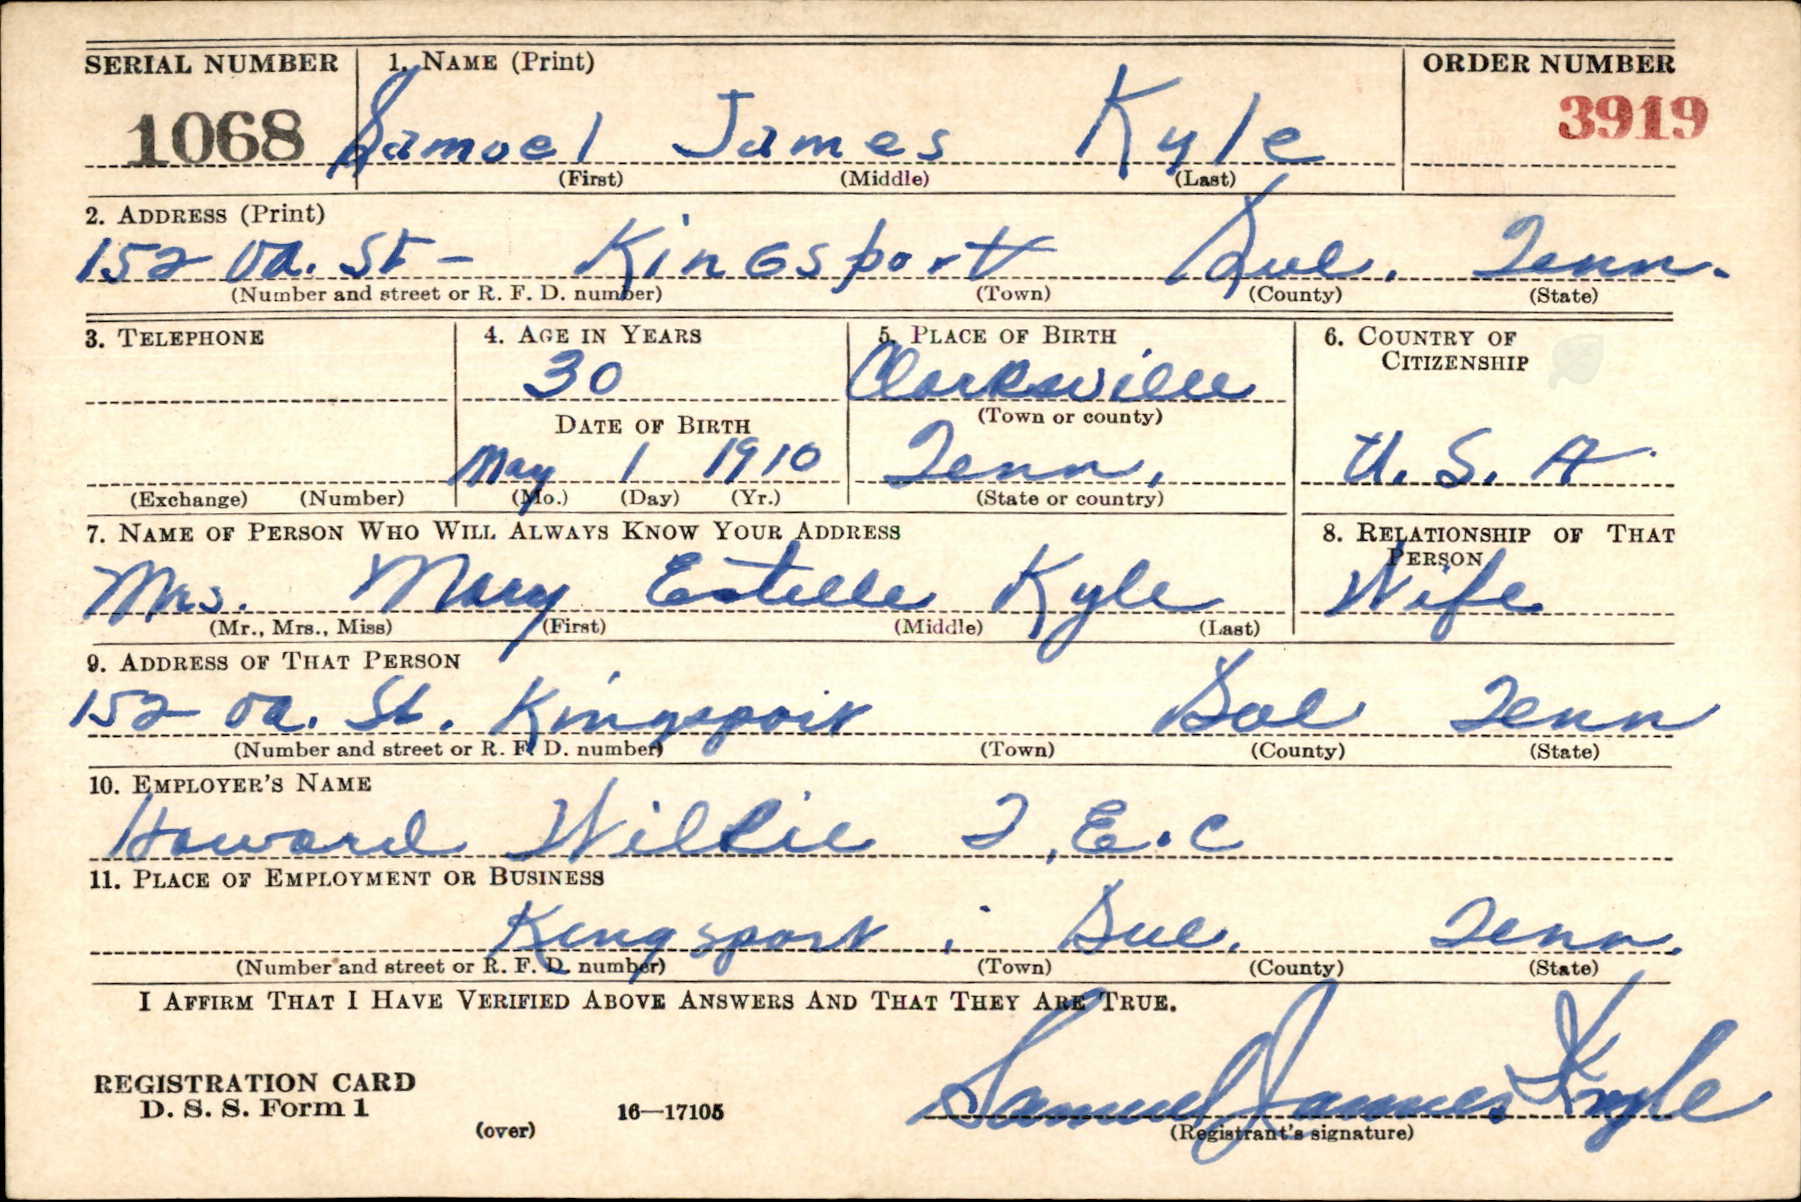 SERIAL NUMBER 1. NAME (Print) ORDER NUMBER
1068 Samuel James Kyle 3919
(First) (Middle) (Last)
2. ADDRESS (Print)
152 Va. St - Kingsport Sul. Tenn.
(Number and street or R. F. D. number) (Town) (County) (State)
3. TELEPHONE 4. AGE IN YEARS 5. PLACE OF BIRTH 6. COUNTRY OF CITIZENSHIP
30 Clarksville
DATE OF BIRTH (Town or county)
May 1 1910 Tenn. U. S. A.
(Exchange) (Number) (Mo.) (Day) (Yr.) (State or country)
7. NAME OF PERSON WHO WILL ALWAYS KNOW YOUR ADDRESS 8. RELATIONSHIP OF THAT PERSON
Mrs. Mary Estelle Kyle Wife
(Mr., Mrs., Miss) (First) (Middle) (Last)
9. ADDRESS OF THAT PERSON
152 Va. St. Kingsport Sul Tenn
(Number and street or R. F. D. number) (Town) (County) (State)
10. EMPLOYER'S NAME
Howard Willie T.E.C
11. PLACE OF EMPLOYMENT OR BUSINESS
Kingsport Sul. Tenn.
(Number and street or R. F. D. number) (Town) (County) (State)
I AFFIRM THAT I HAVE VERIFIED ABOVE ANSWERS AND THAT THEY ARE TRUE.
REGISTRATION CARD
D. S. S. Form 1 16—17105 Samuel James Kyle
(over) (Registrant's signature)